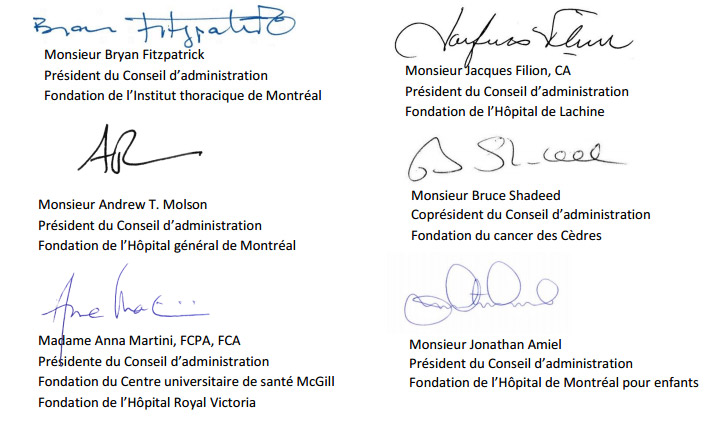 Bryan Fitzpatrick
Monsieur Bryan Fitzpatrick
Président du Conseil d’administration
Fondation de l’Institut thoracique de Montréal
Monsieur Jacques Filion, CA
Président du Conseil d’administration
Fondation de l’Hôpital de Lachine
Monsieur Andrew T. Molson
Président du Conseil d’administration
Fondation de l’Hôpital général de Montréal
Monsieur Bruce Shadeed
Coprésident du Conseil d’administration
Fondation du cancer des Cèdres
Madame Anna Martini, FCPA, FCA
Présidente du Conseil d’administration
Fondation du Centre universitaire de santé McGill
Fondation de l’Hôpital Royal Victoria
Monsieur Jonathan Amiel
Président du Conseil d’administration
Fondation de l’Hôpital de Montréal pour enfants